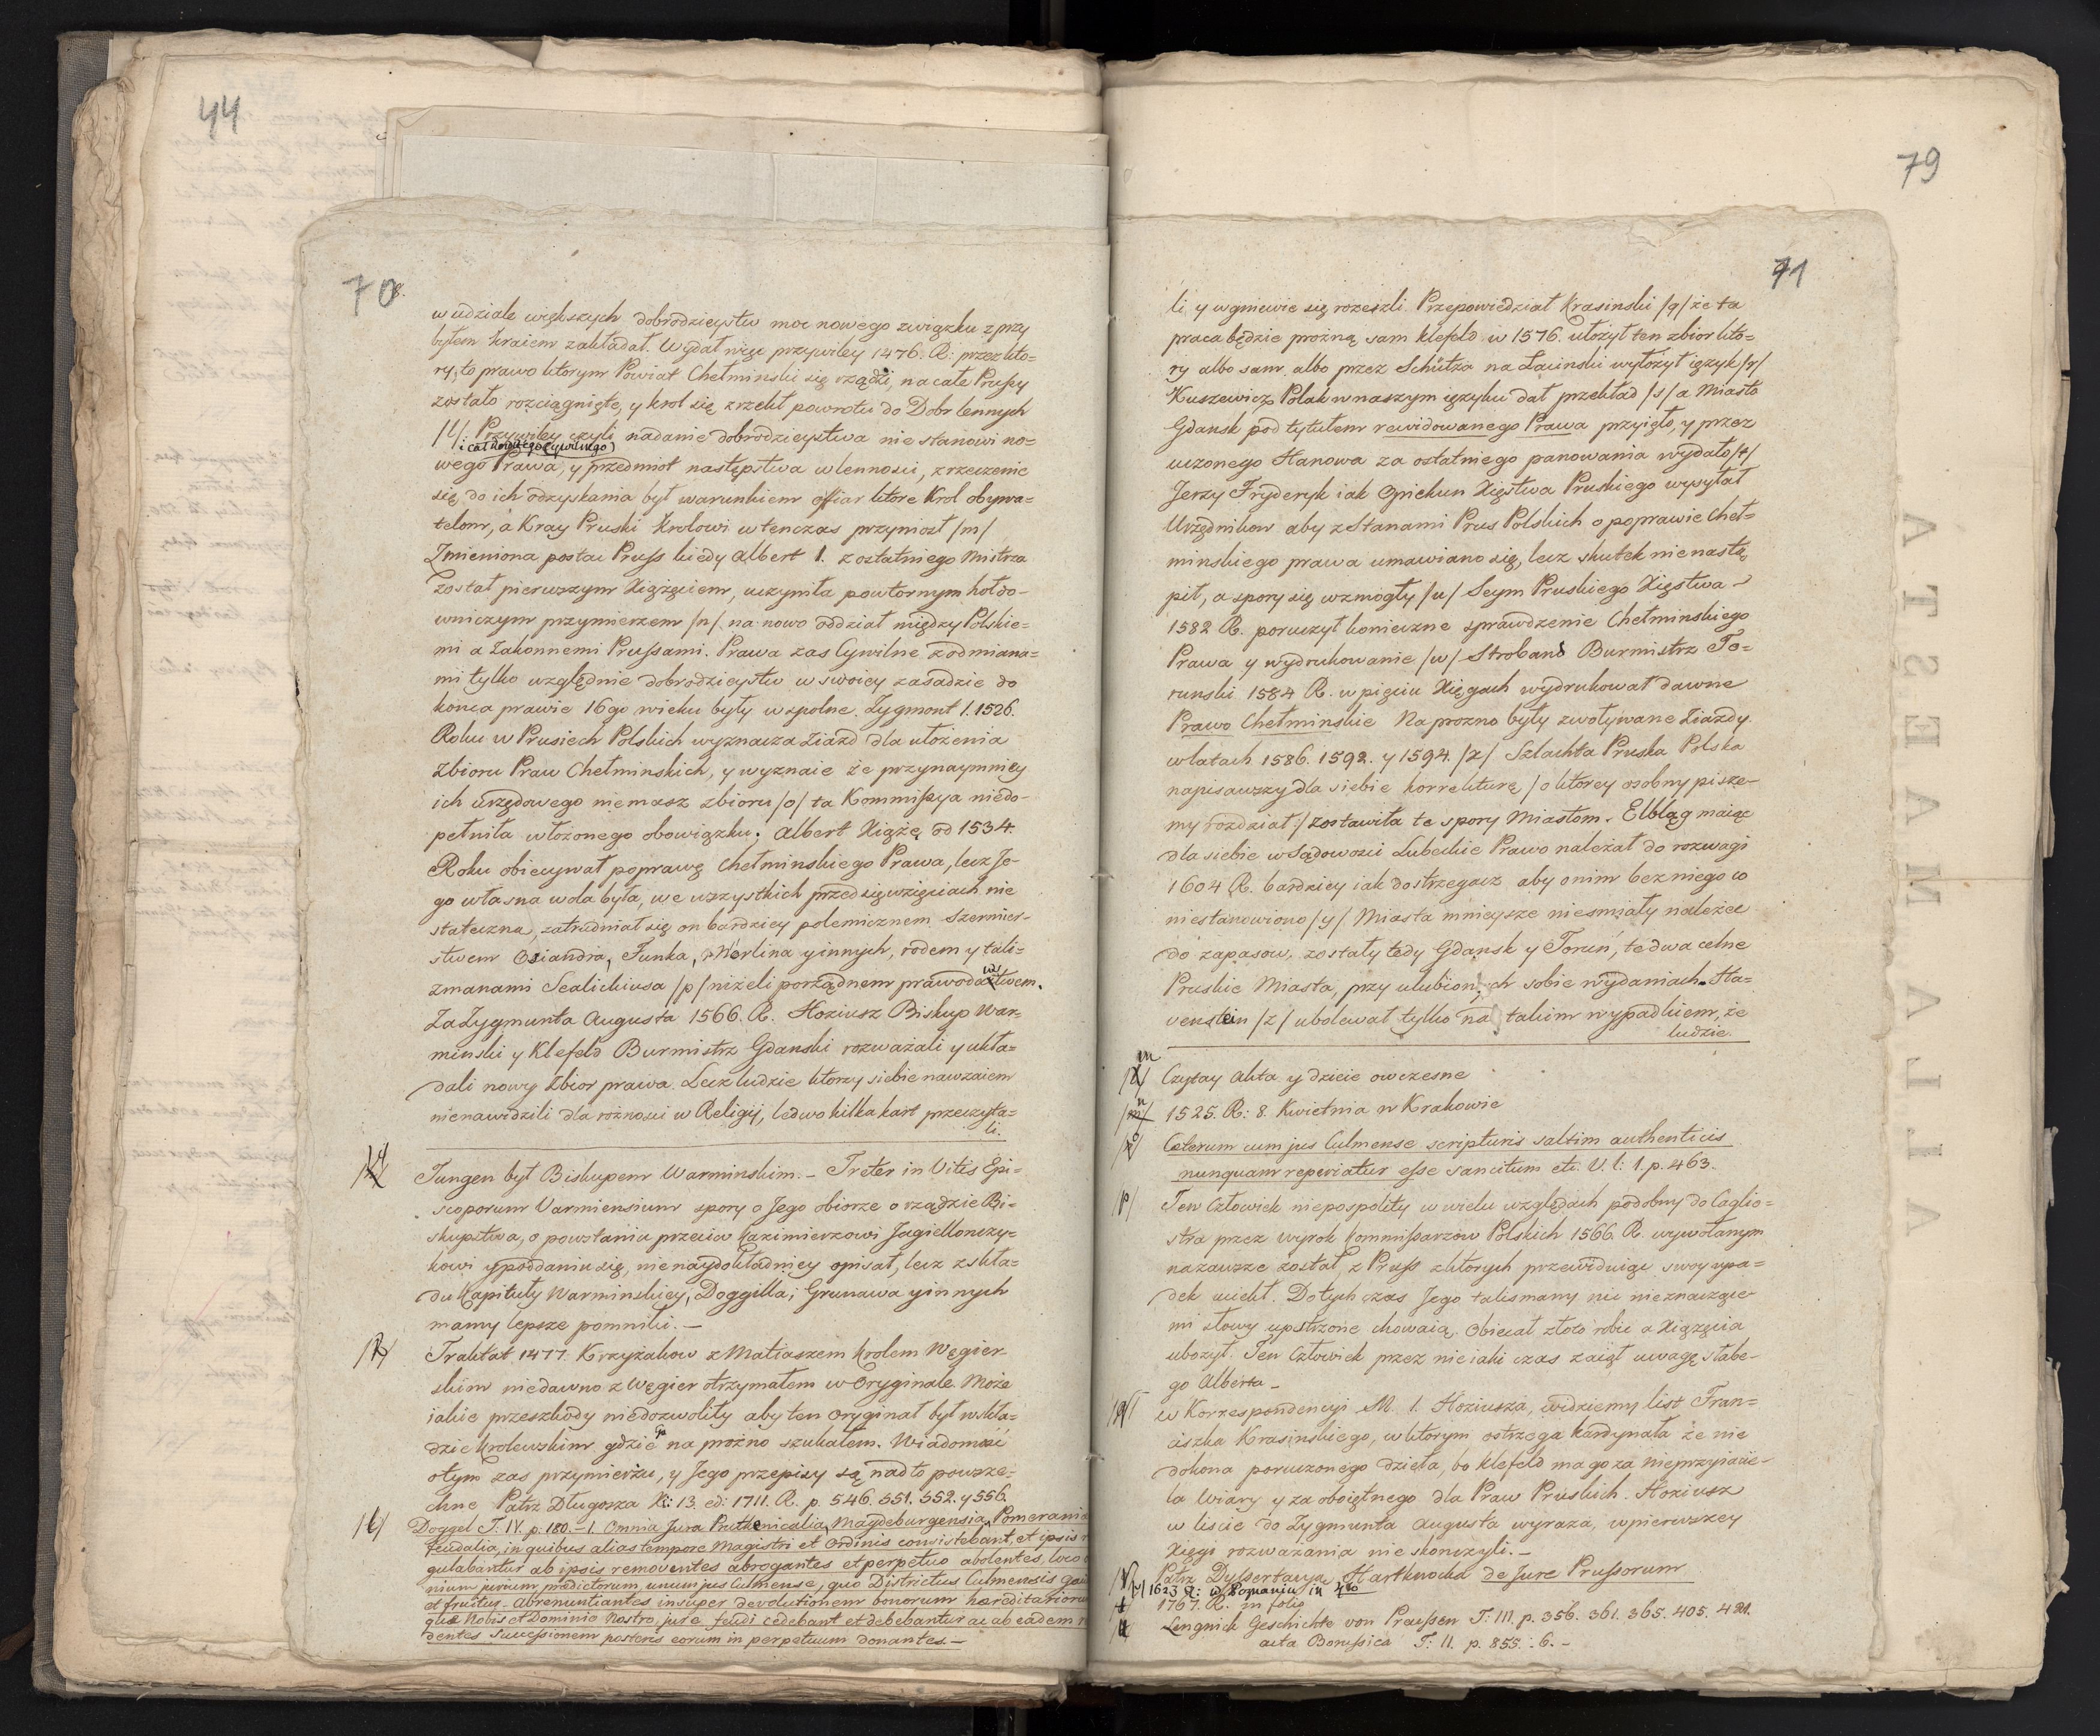 44
70
w udziale większych dobrodzieystw moc nowego związku z przy
byłem kraiem zakładał. Wydał więc przywiley 1476. R: przez któ=
ry, to prawo którym Powiat Chełminski się rządzi, na całe Prussy
zostało rozciągnięte, y krol się zrzekł powrotu do Dobr lennych
/ł/: Przywiley czyli nadanie dobrodzieystwa nie stanowi no=
i całkowitego Cywilnego)
wego Prawa, y przedmiot następstwa w lennosci, zrzeczenie
się do ich odzyskania był warunkiem offiar które Krol obywa=
telom, a Kray Pruski Krolowi w tenczas przyniosł /m/
Zmieniona postać Pruss kiedy Albert 1. z ostatniego Mistrza
został pierwszym Xiążęciem, uczyniła powtornym hołdo-
wniczym przymierzem /n/ na nowo oddział między Polskie=
mi a Zakonnemi Prussami. Prawa zas Cywilne z odmiana=
mi tylko względnie dobrodzieystw w swoiey zasadzie do
konca prawie 16go wieku były wspolne. Zygmont 1. 1526.
Roku w Prusiech Polskich wyznacza Ziazd dla ułożenia
Zbioru Praw Chełminskich, y wyznaie że przynaymniey
ich urzędowego niemasz zbioru /o/ ta Kommissya niedo-
pełniła włożonego obowiązku; Albert Xiążę od 1534.
Roku obiecywał poprawę Chełminskiego Prawa, lecz Je-
go własna wola była, we wszystkich przedsięwzięciach nie
stateczna, zatrudniał się on bardziey polemicznem Szermier-
stwem Osiandra, Funka, Merlina y innych, rodem y tali=
zmanami Scalichiusa /p/ niżeli porządnem prawodawstwem.
Za Zygmunta Augusta 1566. R. Hoziusz Biskup War-
minski y Klefeld Burmistrz Gdanski rozważali y ukła=
dali nowy Zbior prawa. Lecz ludzie którzy siebie nawzaiem
nienawidzili dla rożnosci w Religij, ledwo kilka kart przeczyta=
li.
Tungen był Biskupem Warminskim. – Treter in Vitis Epi=
scoporum Varmiensium spory o Jego obiorze o rządzie Bi-
skupstwa, o powstaniu przeciw Kazimierzowi Jagiellonczy=
kowi y poddaniu się, nie naydokładniey opisał, lecz z skła=
du Kapituły Warminskiey, Doggilla, Grunawa y innych
mamy lepsze pomniki. –
Traktat 1477. Krzyżakow z Matiaszem Krolem Węgier
skim niedawno z Węgier otrzymałem w Oryginale. Może
iakie przeszkody niedozwoliły aby ten oryginał był w skła=
dzie krolewskim gdzie go na prożno szukałem. Wiadomość
o tym zas przymierzu, y Jego przepisy są nadto powsze=
chne Patrz Długosza X: 13. ed: 1711. R. p. 546. 551. 552. y 556.
/ł/ Doggel T. IV. p. 180. – 1. Omnia Jura Pruthenicalia, Maydeburgensia, Pomerania
feudalia, in quibus alias tempore Magistri et Ordinis consistebant, et ipsis r
gulabantur ab ipsis removentes abrogantes et perpetuo abolentes, loco
nium jurium predictorum, unum jus Culmense, quo Districtus Culmensis gau
et fruitur – Abrenuntiantes insuper devolutionem bonorum haereditariorum
quae Nobis et Dominio Nostro jure feudi cedebant et debebantur ac ab eadem r
dentes Successionem posteris eorum in perpetuum donantes –
79
71
li, y w gniewie się rozeszli Przepowiedział Krasinski /q/ że ta
praca będzie prożną, sam Klefeld w 1576. ułożył ten zbior któ=
ry albo sam, albo przez Schütza na Łacinski wyłożył ięzyk /r/
Kuszewicz Polak w naszym ięzyku dał przekład /s/ a Miasto
Gdansk pod tytułem rewidowanego Prawa przyięło, y przez
uczonego Hanowa za ostatniego panowania wydało /t/
Jerzy Fryderyk iak Opiekun Xięstwa Pruskiego wysyłał
Urzędnikow aby z Stanami Prus Polskich o poprawie Cheł=
minskiego prawa umawiano się, lecz skutek nienastą
pił, a spory się wzmogły /u/ Seym Pruskiego Xięstwa
1582 R. poruczył konieczne sprawdzenie Chełminskiego
Prawa y wydrukowanie /w/ Stroband Burmistrz To=
runski 1584 R. w pięciu Xięgach wydrukował dawne
Prawo Chełminskie Na prozno były zwoływane Ziazdy
w latach 1586. 1592. y 1594. /x/ Szlachta Pruska Polska
napisawszy dla siebie korrekturę /o ktorey osobny pisze-
my rozdział:/ zostawiła te spory Miastom. Elbląg maiąc
dla siebie w Sądowosci Lubeckie Prawo należał do rozwagi
1604 R. bardziey iak dostrzegacz aby o nim bez niego co
niestanowiono /y/ Miasta mnieysze niesmiały należeć
do zapasow, zostały tedy Gdansk y Toruń, te dwa celne
Pruskie Miasta, przy ulubionych sobie wydaniach. Ha=
venstein /z/ ubolewał tylko na takim wypadkiem, że
ludzie.
m
Czytay Akta y dzieie owczesne
n
1525. R: 8. Kwietnia w Krakowie
o
Caeterum cum jus Culmense scripturis saltim authenticis
nunquam reperiatur esse sancitum etc. V. l: 1. p. 463.
/p/ Ten Człowiek niepospolity w wielu względach podobny do Caglio=
stra przez wyrok Kommissarzow Polskich 1566. R. wywołanym
na zawsze został z Pruss z których przewiduiąc swoy upa=
dek uciekł. Dotychczas Jego talismany nic nieznaczące
mi słowy upstrzone chowaią. Obiecał złoto robić a Xiążęcia
ubożył. Ten Człowiek przez nieiaki czas zaiął uwagę słabe-
go Alberta –
/q/ w Korrespondencyi M. 1. Hoziusza, widziemy list Fran=
ciszka Krasinskiego, w którym ostrzega Kardynała że nie
dokona poruczonego dzieła, bo Klefeld ma go za nieprzyiacie-
la Wiary y za oboiętnego dla Praw Pruskich. Hoziusz
w liscie do Zygmunta Augusta wyraża, w pierwszey
Xięgi rozważania nie skonczyli. –
Patrz Dyssertacya Hartknocha de Jure Prussorum
1623 R: w Poznaniu in 4to
1767. R. in folio
Lengnich Geschichte von Preussen T: III. p. 356. 361. 365. 405. 421.
acta Borussica T: II. p. 855. 6. –
ALLA NAMESTA